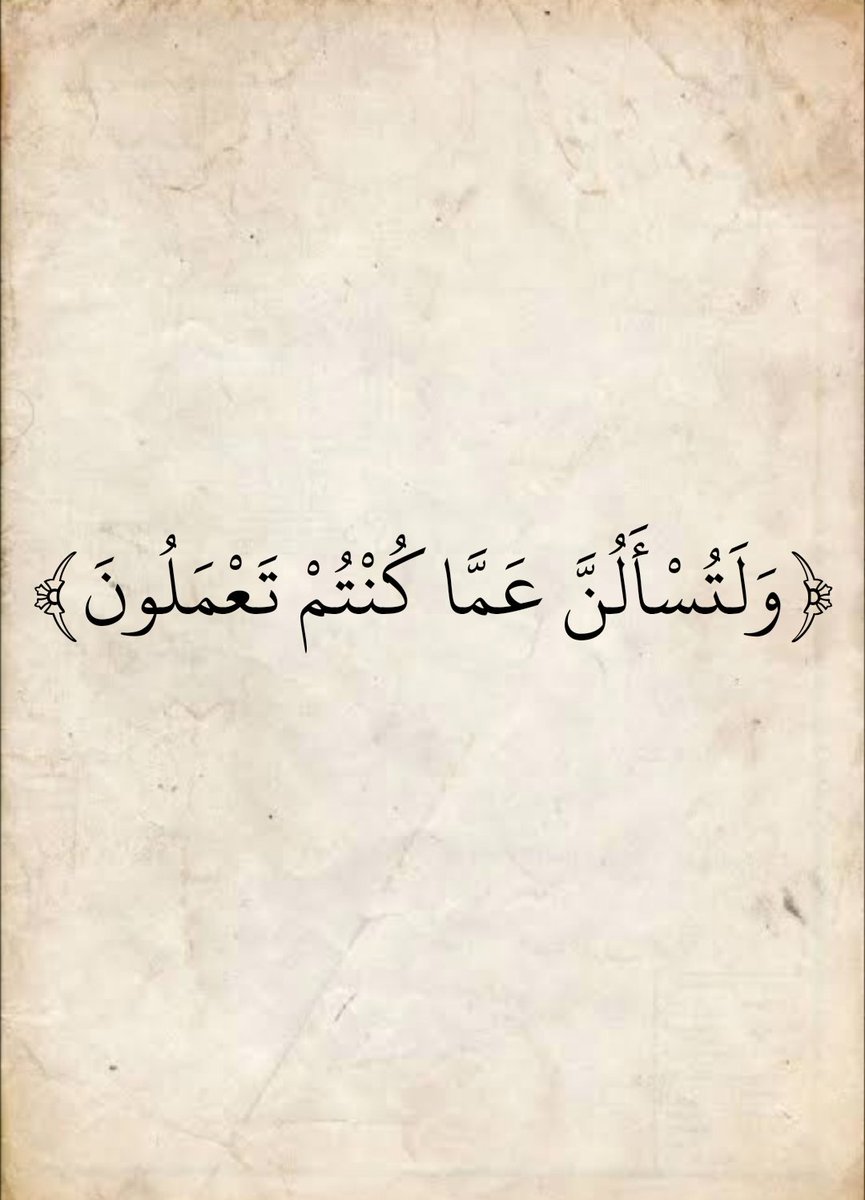 ﴿وَلَتُسْأَلُنَّ عَمَّا كُنْتُمْ تَعْمَلُونَ﴾